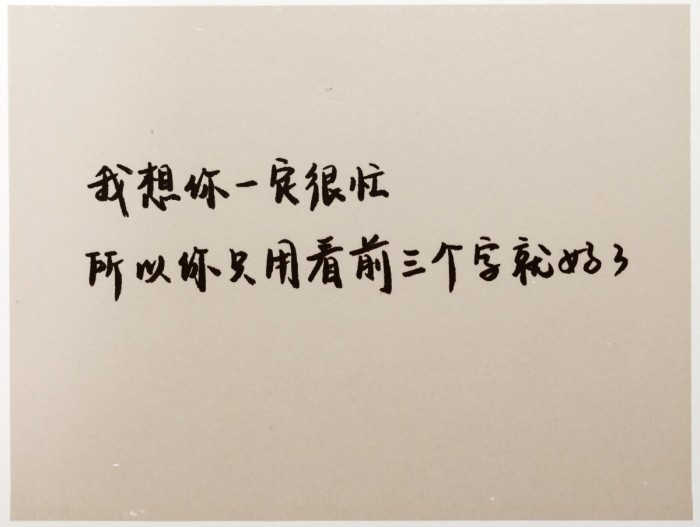 我想你一定很忙
所以你只用看前三个字就好了